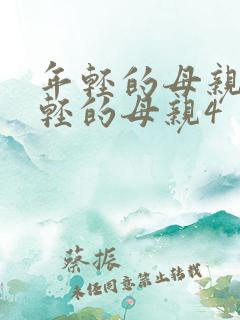 年轻的母親
轻的母親4
蔡振
未经同意禁止转载